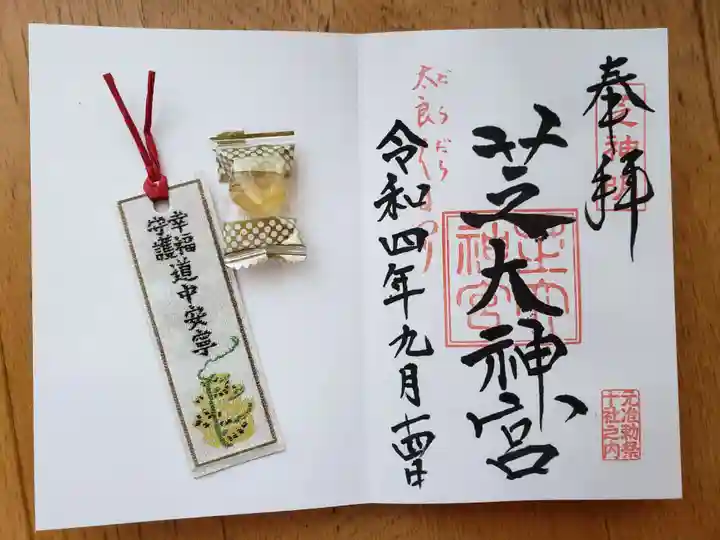 奉拝
芝神明
芝大神宮
芝大神宮
元治勅祭
十社之内
太良
だらだら
令和四年九月十四日
幸福
守護
道中安寧